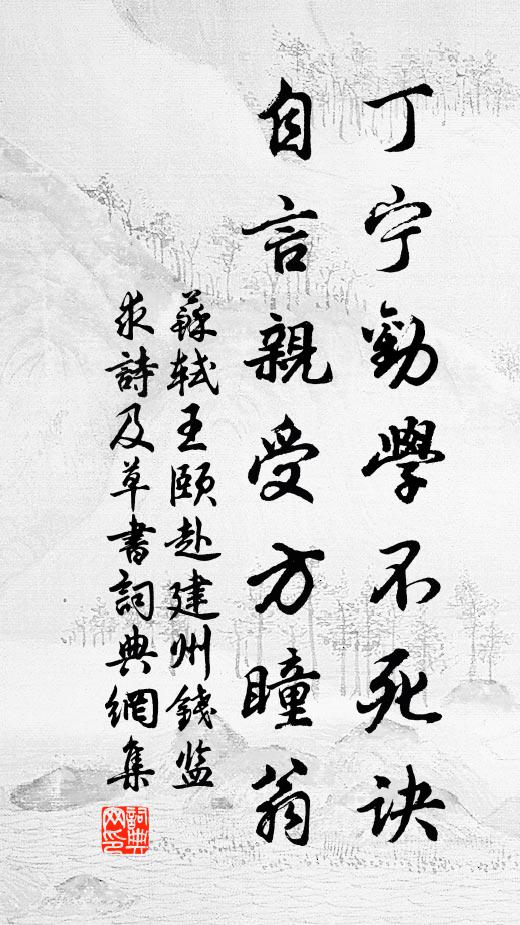 丁宁勸學不死诀
自言親受方瞳翁
蘇轼王頤赴建州錢监
求詩及草書詞典網集
詞典网印